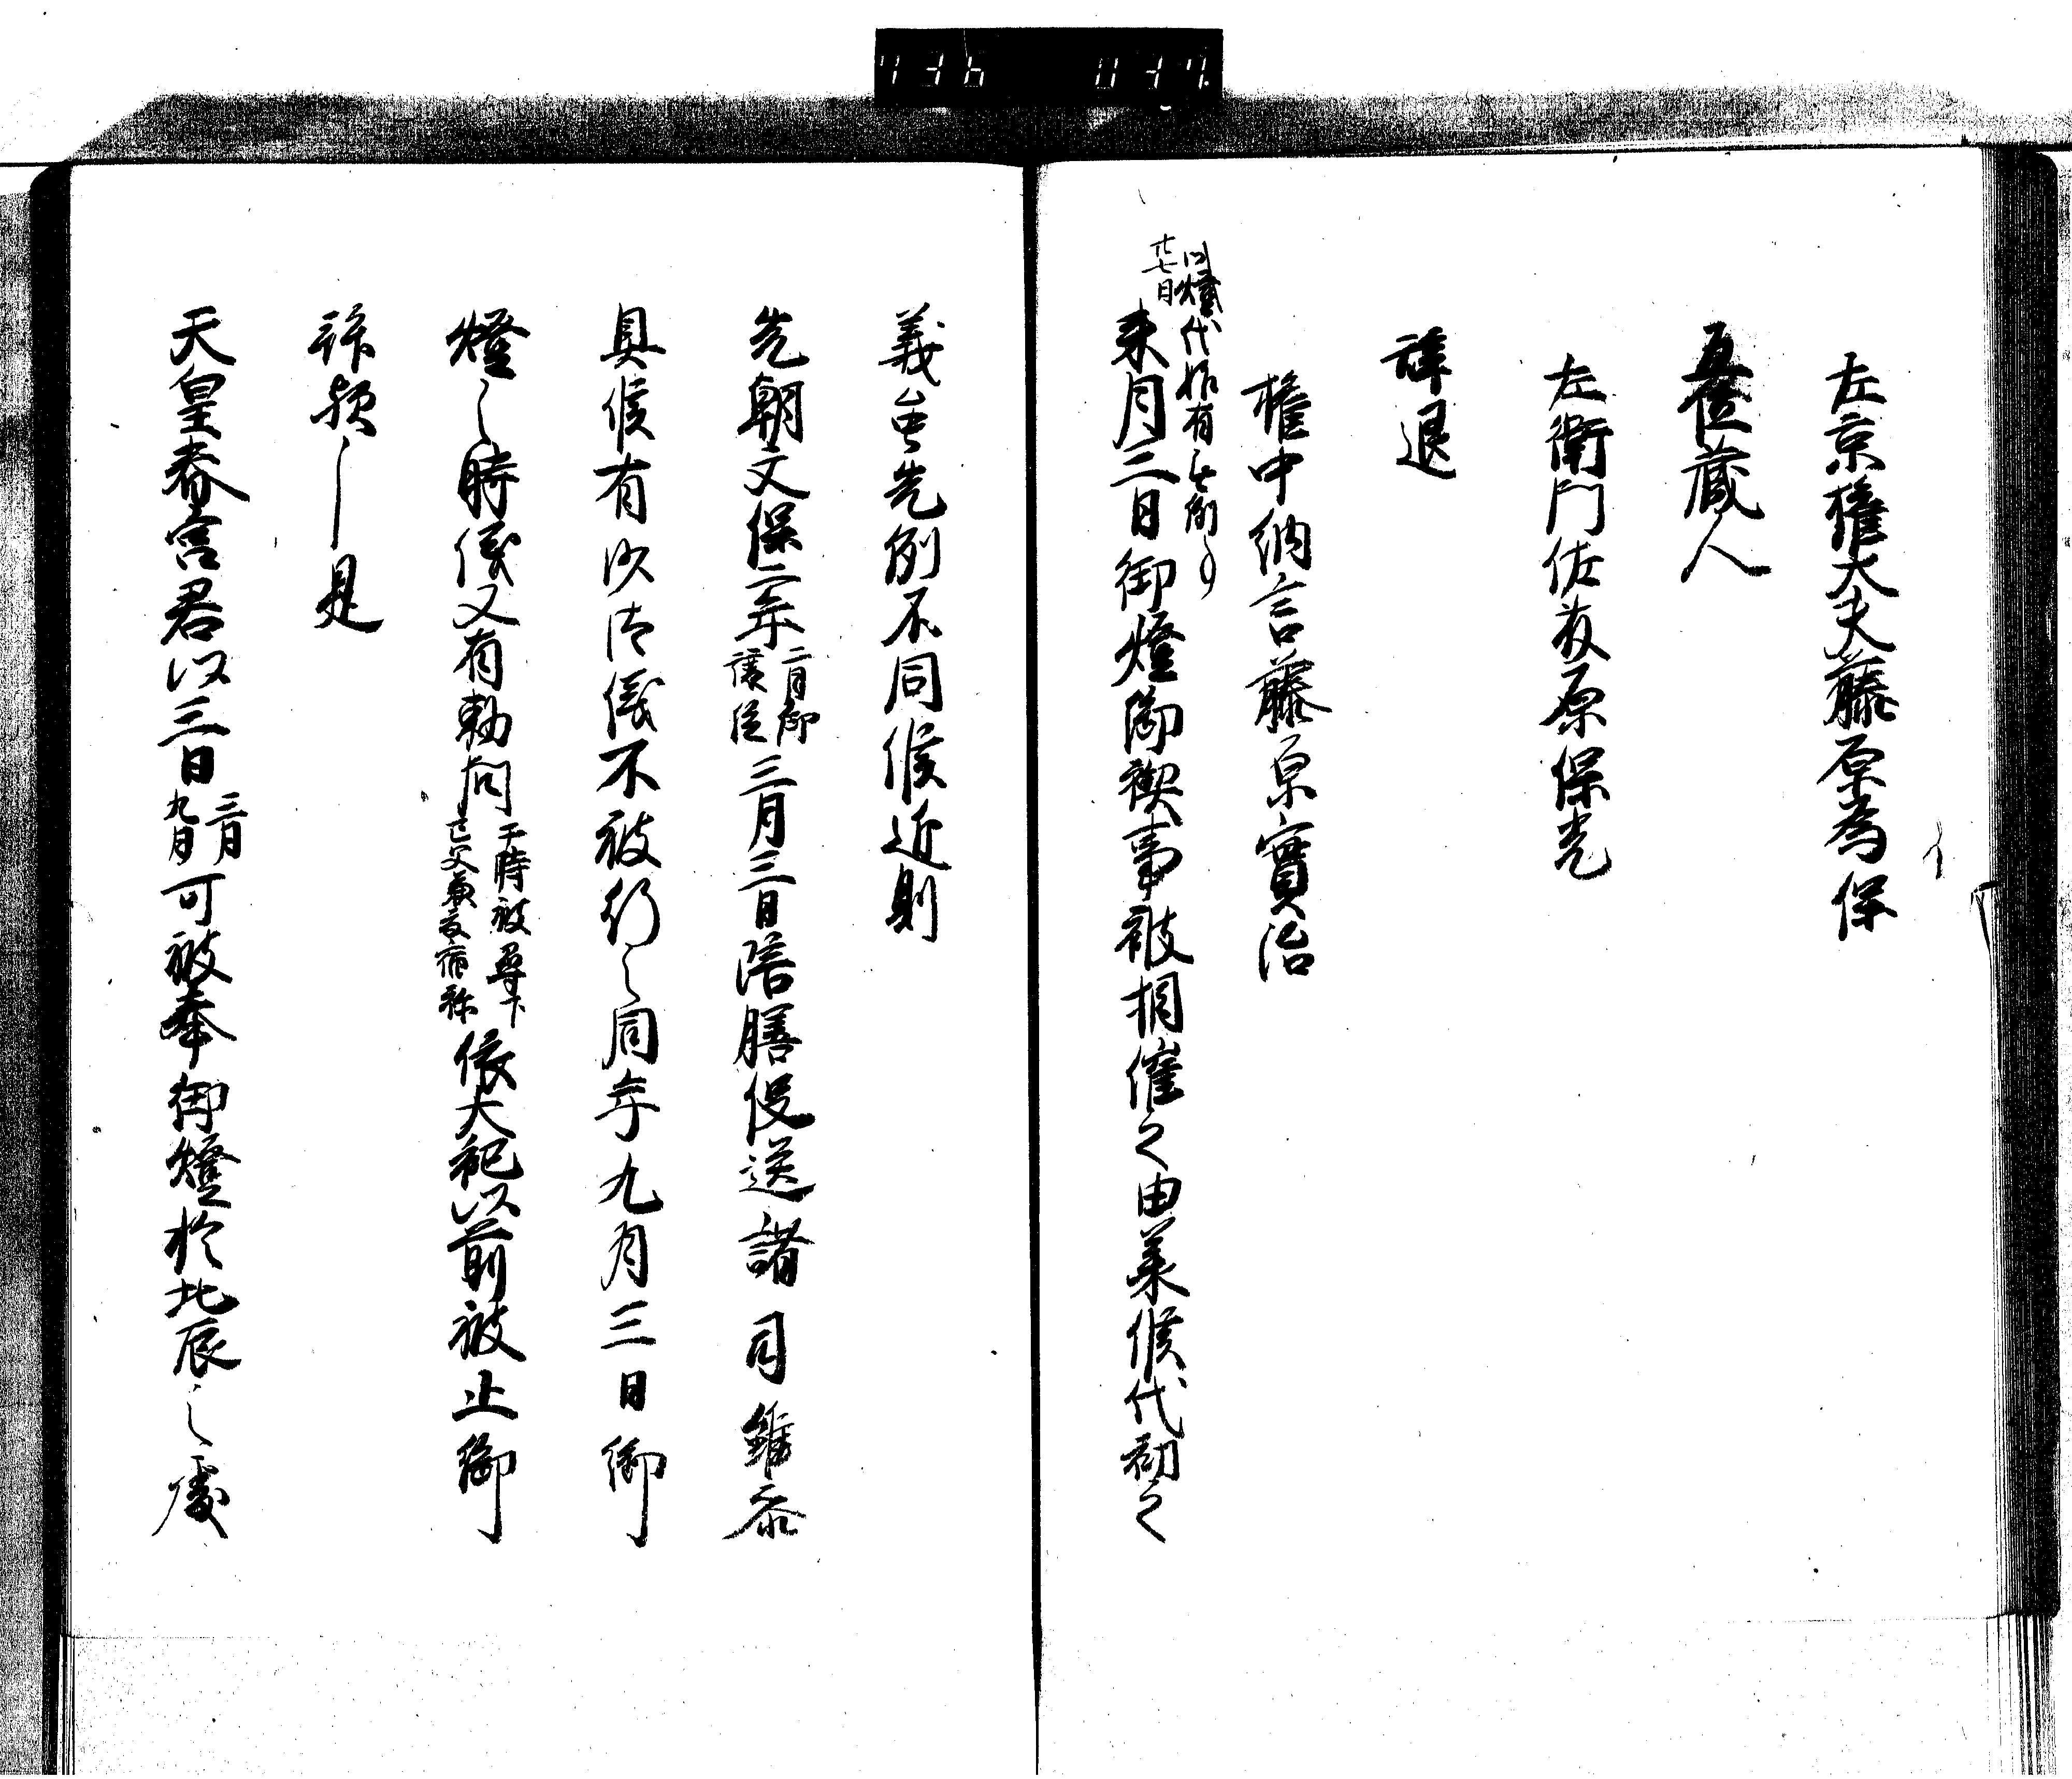 左京權大夫藤原為保
五位蔵人
左衛門佐藤原保光
辞退
權中納言藤原實治
御燈代始有無例事
廿七日
来月三日御燈御禊事被相催之由承候代初之
義出先例不同候近則
先朝文保二年二月御譲位三月三日陪膳役送諸司雖参
具候有沙汰儀不被行之同年九月三日御
燈之時儀又有勅問于時被尋下亡父兼依大祀以前被止御
誅歟是
天皇春宮君以三日三月九月可被奉御燈於北辰之處